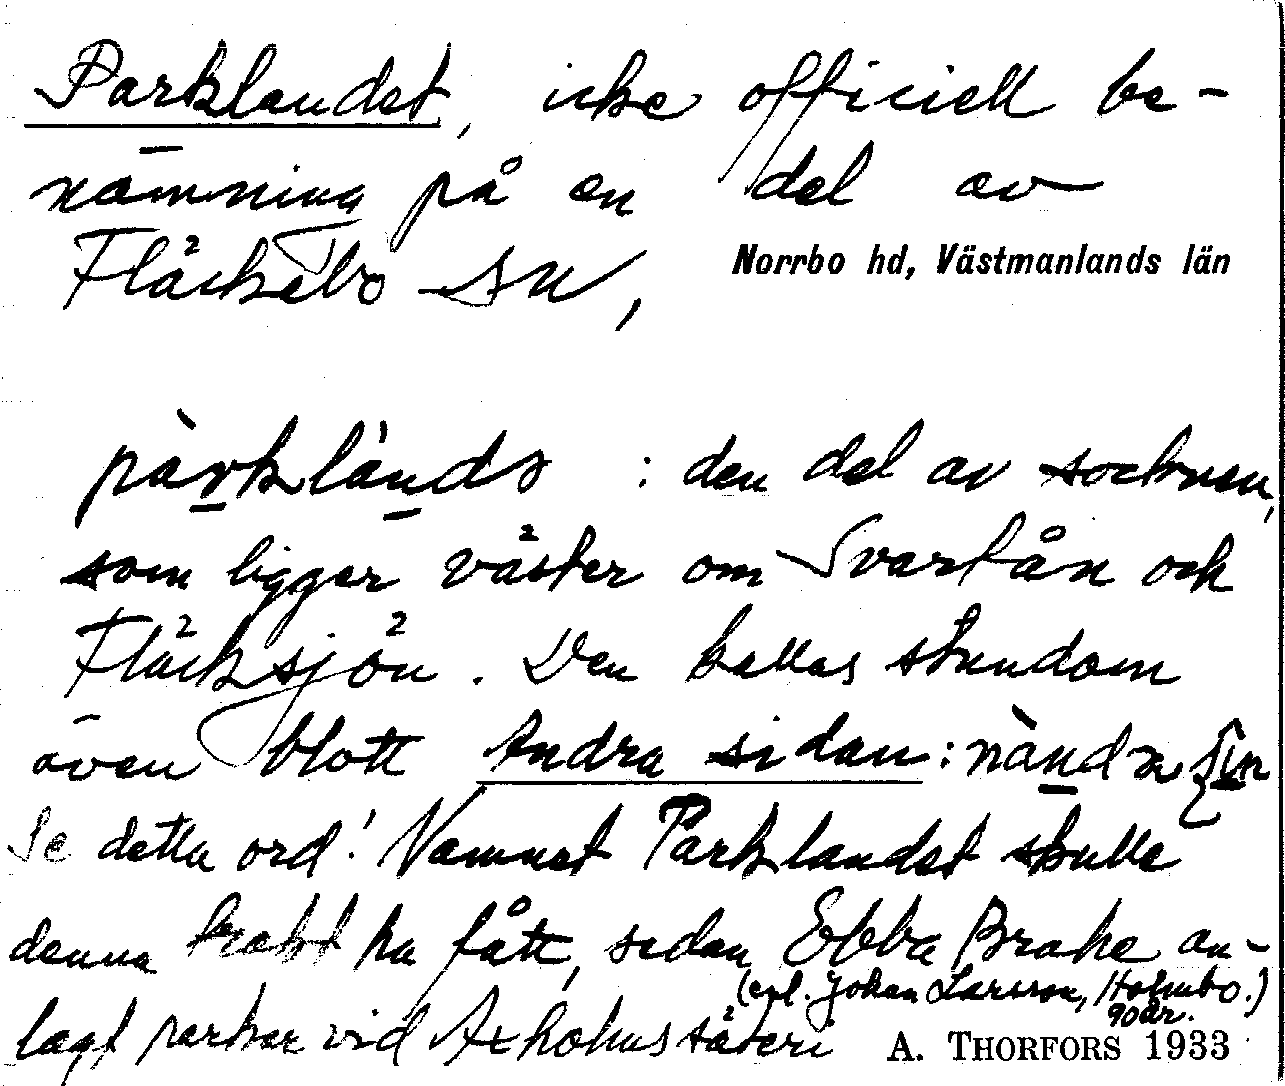 Parklandet, icke officiell be-
nämning på en del av
Fläckebo sn,
Norrbo hd, Västmanlands län
: den del av socknen,
som ligger väster om Svartån och
Fläcksjön. Den kallas stundom
även blott Andra sidan:
Se detta ord! Namnet Parklandet skulle
denna trakt ha fått, sedan Ebba Brahe an-
(enl. Johan Larsson, Holmbo.)
90 år.
lagt parker vid Axholms säteri
A. THORFORS 1933